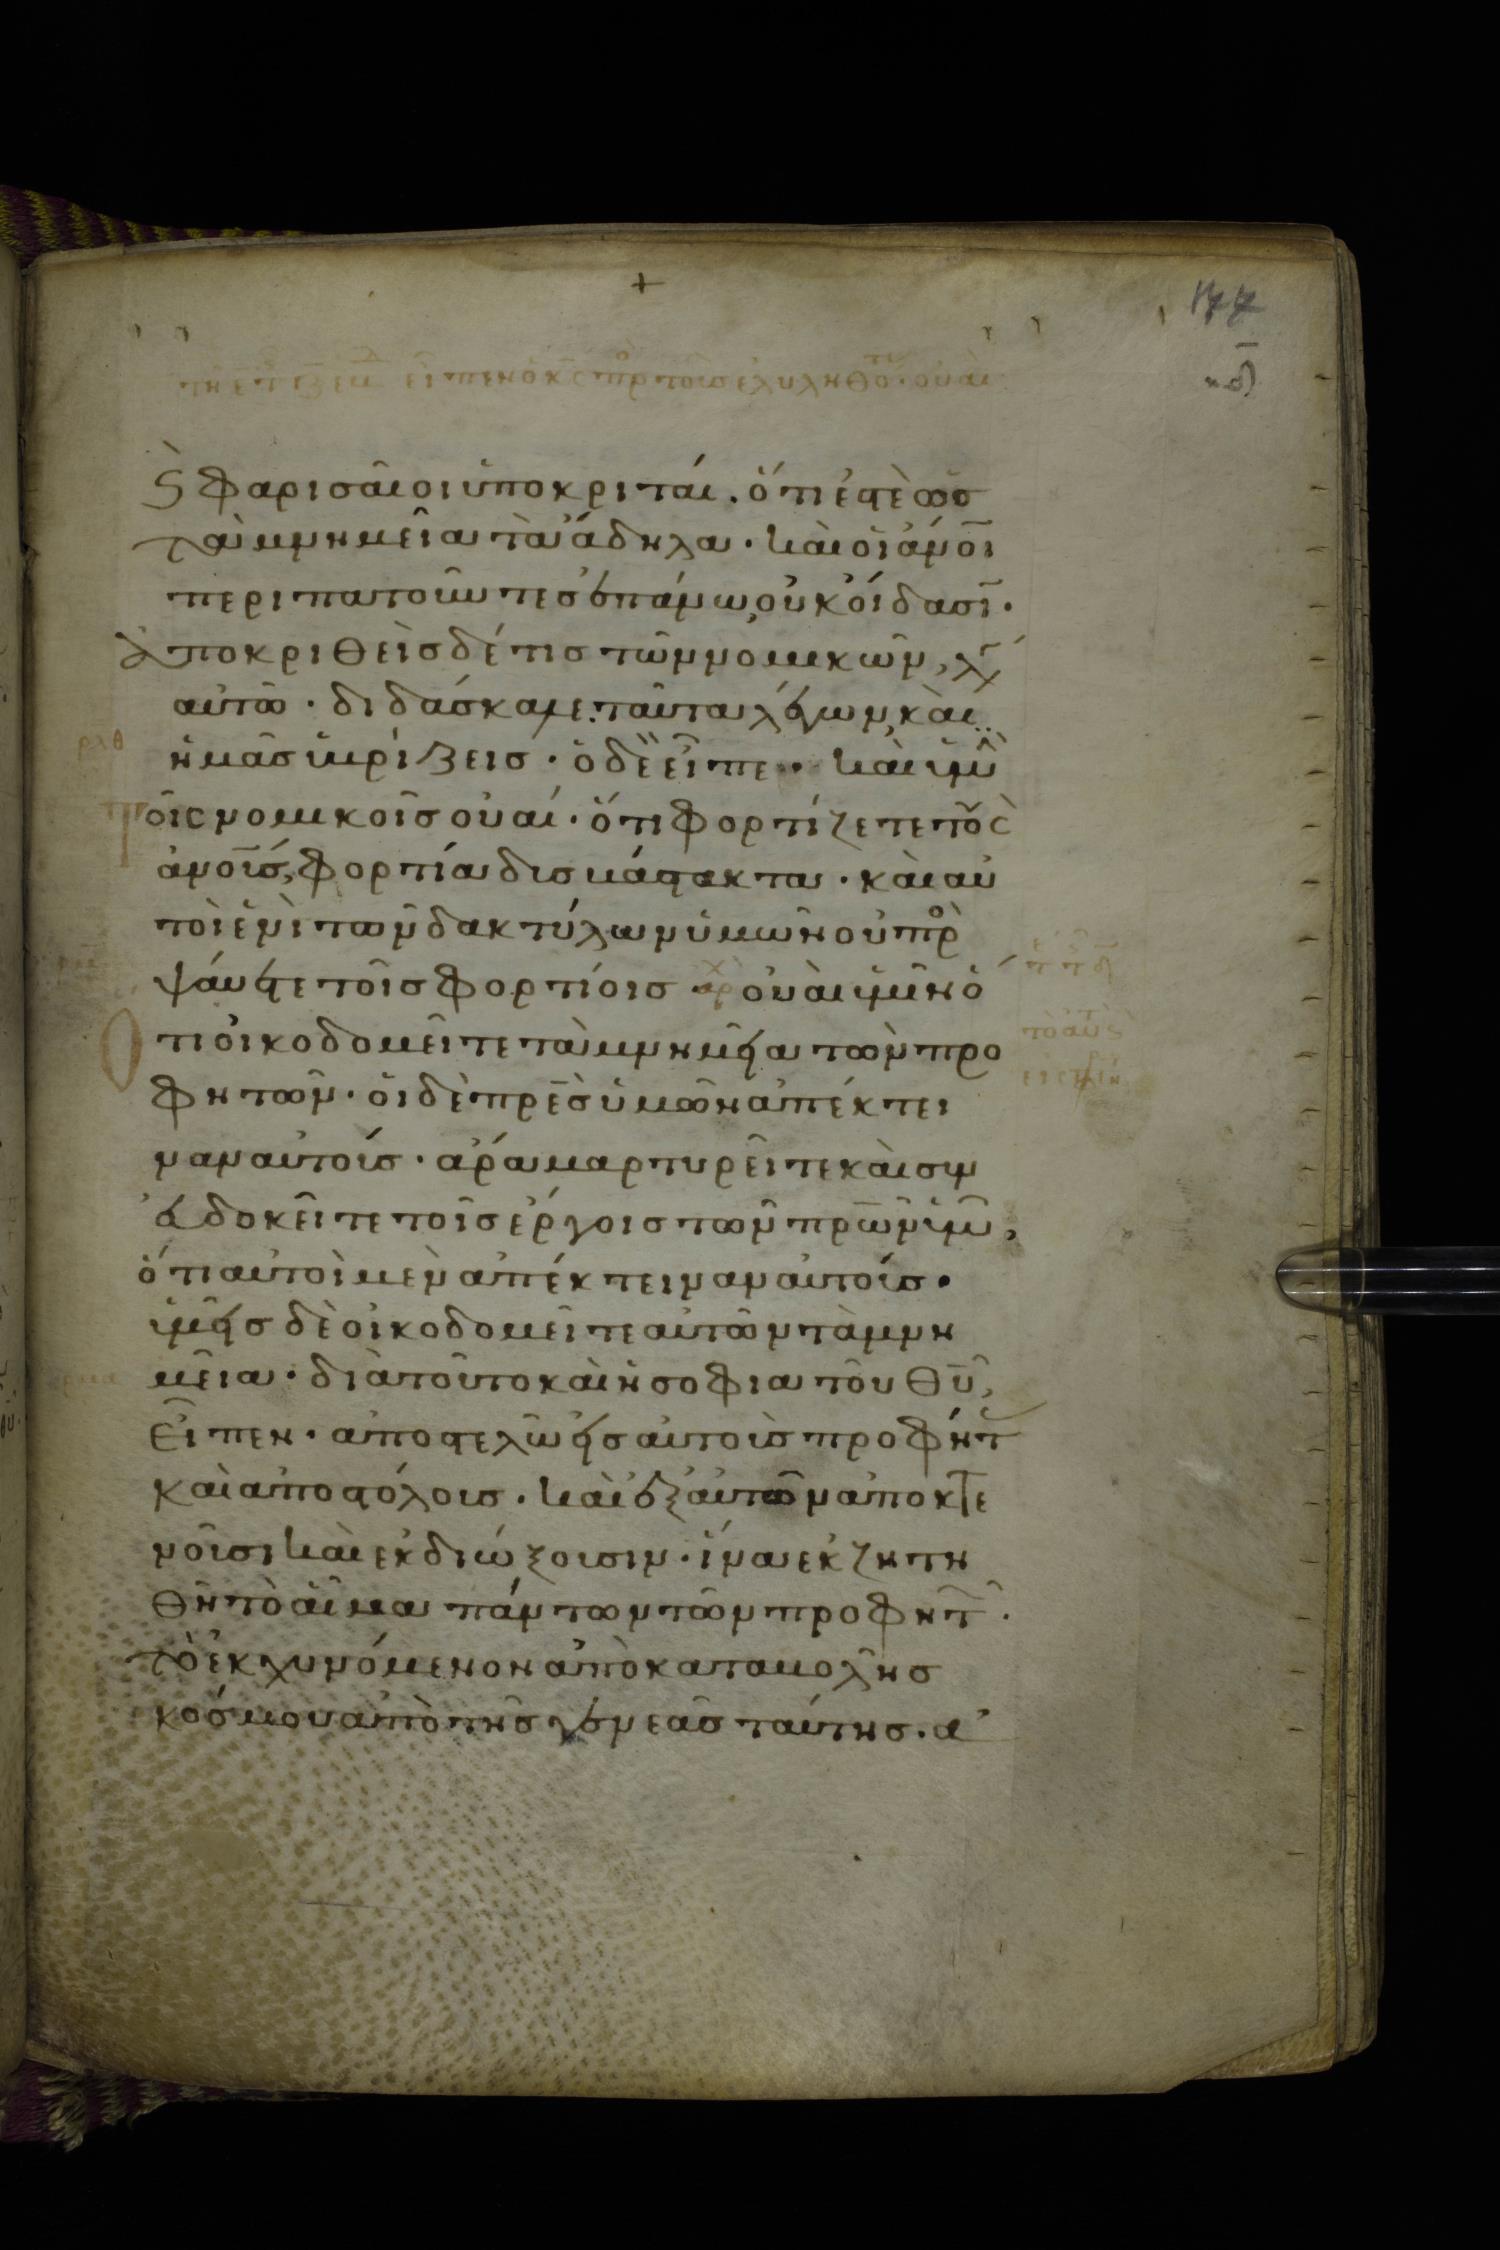 177
κδ̅
τῆ ε̅ τ ιβ̅ ἑβδ εἶπεν ὁ κ̅ς̅ πρ τοὺς ἐληλυθότ · οὐαὶ
ϗ φαρισαῖοι ὑποκριταί · ὅτι ἐστὲ ὡς
τὰ μνημεῖα τὰ ἄδηλα · καὶ οἱ ἄν̅οι̅
περιπατοῦντες ἐπάνω, οὐκ οἴδασῑ ·
Ἀποκριθεὶς δέ τις τῶν νομικῶν, λέ
αὐτῶ · διδάσκαλε · ταῦτα λέγων καὶ
ρλθ
ἡμᾶς ὑβρίζεις · ὁ δὲ εἶπε · καὶ ὑμῖ
Τοῖς νομικοῖς οὐαί · ὅτι φορτίζετε τοὺς
ἀν̅ο̅ι̅ς, φορτία δυσβάστακτα · καὶ αὐ
τοὶ ἑνὶ τῶν δακτύλων ὑμῶν οὐ πρὸ
ψαύετε τοῖς φορτίοις ἀρχ οὐαὶ ὑμῖν ὅ
Ὅτι οἰκοδομεῖτε τὰ μνημεῖα τῶν προ
φητῶν · οἱ δὲ πρε̅ς ὑμῶν ἀπέκτει
ναν αὐτούς · ἄρα μαρτυρεῖτε καὶ συν
ευδοκεῖτε τοῖς ἔργοις τῶν πρω̅ν ὑμῶ,
ὅτι αὐτοὶ μὲν ἀπέκτειναν αὐτούς ·
ὑμεῖς δὲ οἰκοδομεῖτε αὐτῶν τὰ μνη
ρμα
μεῖα · διὰ τοῦτο καὶ ἡ σοφία τοῦ θ̅υ̅,
Εἶπεν · ἀποστελῶ εἰς αὐτοὺς προφήτ
καὶ ἀποστόλους · καὶ ἐξ αὐτῶν ἀποκτε
νοῦσι καὶ ἐκδιώξουσιν · ἵνα ἐκζητη
θῆ τὸ αἷμα πάντων τῶν προφητ ·
τὸ ἐκχυνόμενον ἀπὸ καταβολῆς
κόσμου ἀπὸ τῆς γενεᾶς ταύτης · ἀ